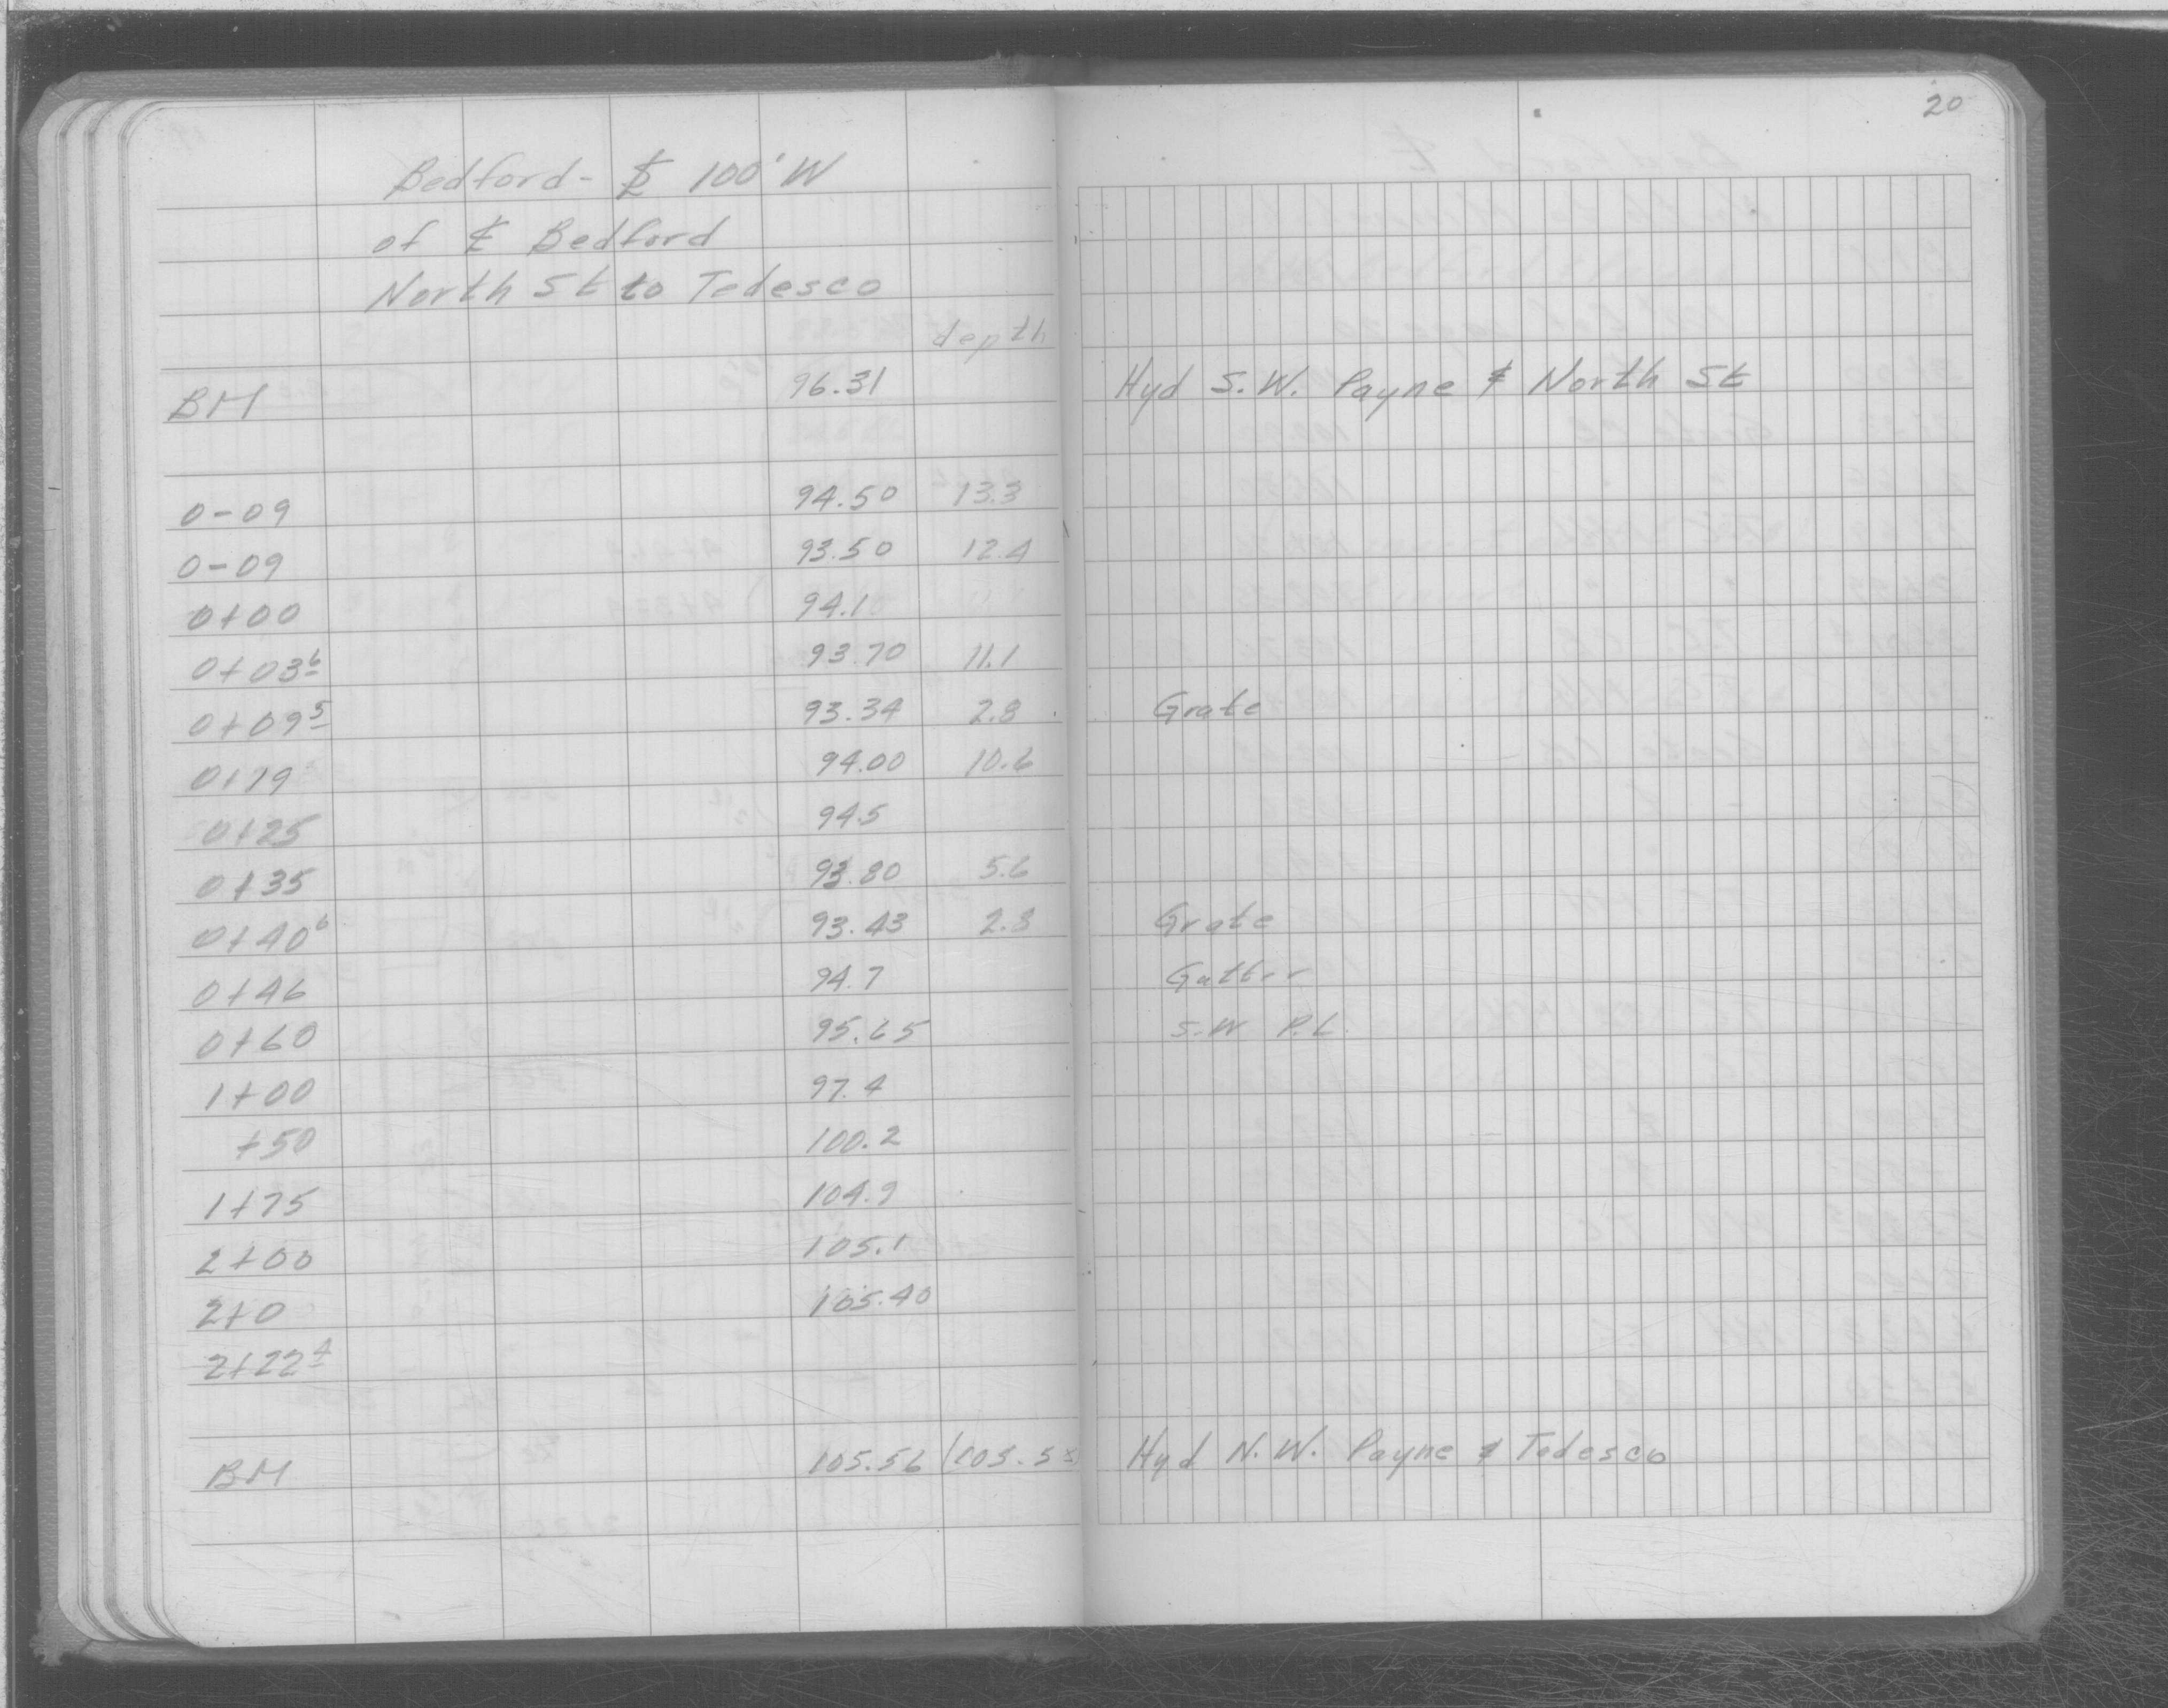 20
Bedford - ⅊ 100' W
of ℄ Bedford
North St to Tedesco
depth
BM 96.31 Hyd S.W. Payne & North St
0-09 94.50 13.3
0-09 93.50 12.4
0+00 94.1
0+03⁶ 93.70 11.1
0+09⁵ 93.34 2.8 Grate
0+19 94.00 10.6
0+25 94.5
0+35 93.80 5.6
0+40⁶ 93.43 2.8 Grate
0+46 94.7 Gutter
0+60 95.65 S.W P.L.
1+00 97.4
+50 100.2
1+75 104.9
2+00 105.1
2+0 105.40
2+22⁴
BM 105.56 Hyd N.W. Payne & Tedesco